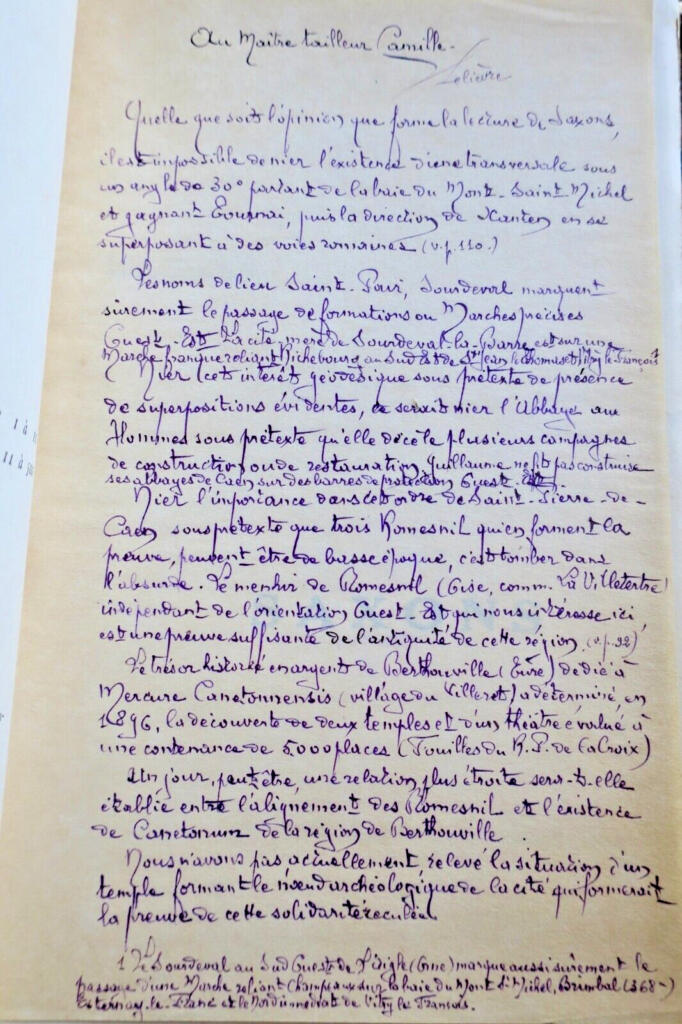 Au Maître tailleur Camille-
Lelièvre
Quelle que soit l'opinion que forme la lecture de Saxons,
il est impossible de nier l'existence d'une transversale sous
un angle de 30° partant de la baie du Mont-Saint Michel
et gagnant Tournai, puis la direction de Xanten en se
superposant à des voies romaines (v.p.110.)
Les noms de lieu Saint-Pair, Sourdeval marquent
sûrement le passage de formations ou Marches précises
Ouest-Est. La cité-mère de Sourdeval-la-Barre est sur une
Marche franque reliant Richebourg au Sud Est de St Jean le Thomas et Vitry-le-François
Nier cet intérêt géodésique sous prétexte de présence
de superpositions évidentes, ce serait nier l'Abbaye aux
Hommes sous prétexte qu'elle décèle plusieurs campagnes
de construction ou de restauration. Guillaume ne fit pas construire
ses abbayes de Caen sur des barres de protection Ouest-Est
Nier l'importance dans cet ordre de Saint-Pierre-de-
Caen sous prétexte que trois Romesnil qui en forment la
preuve, peuvent être de basse époque, c'est tomber dans
l'absurde. Le menhir de Romesnil (Oise, comm. La Villetertre)
indépendant de l'orientation Ouest-Est qui nous intéresse ici,
est une preuve suffisante de l'antiquité de cette région (v.p.92)
Le trésor historié en argent de Berthouville (Eure) dédié à
Mercure Canetonnensis (village du Villeret) a déterminé, en
1896, la découverte de deux temples et d'un théâtre évalué à
une contenance de 5.000 places (Fouilles du R.P. de la Croix)
Un jour, peut être, une relation plus étroite sera-t-elle
établie entre l'alignement des Romesnil et l'existence
de Canetonum de la région de Berthouville.
Nous n'avons pas actuellement relevé la situation d'un
temple formant le nœud archéologique de la cité qui formerait
la preuve de cette solidarité reculée.
1 Le Sourdeval au Sud Ouest de l'Aigle (Orne) marque aussi sûrement le
passage d'une Marche reliant Champeaux sur la baie du Mont St Michel, Brimbal (368-)
Esternay-le-Franc et le Nord immédiat de Vitry le François.